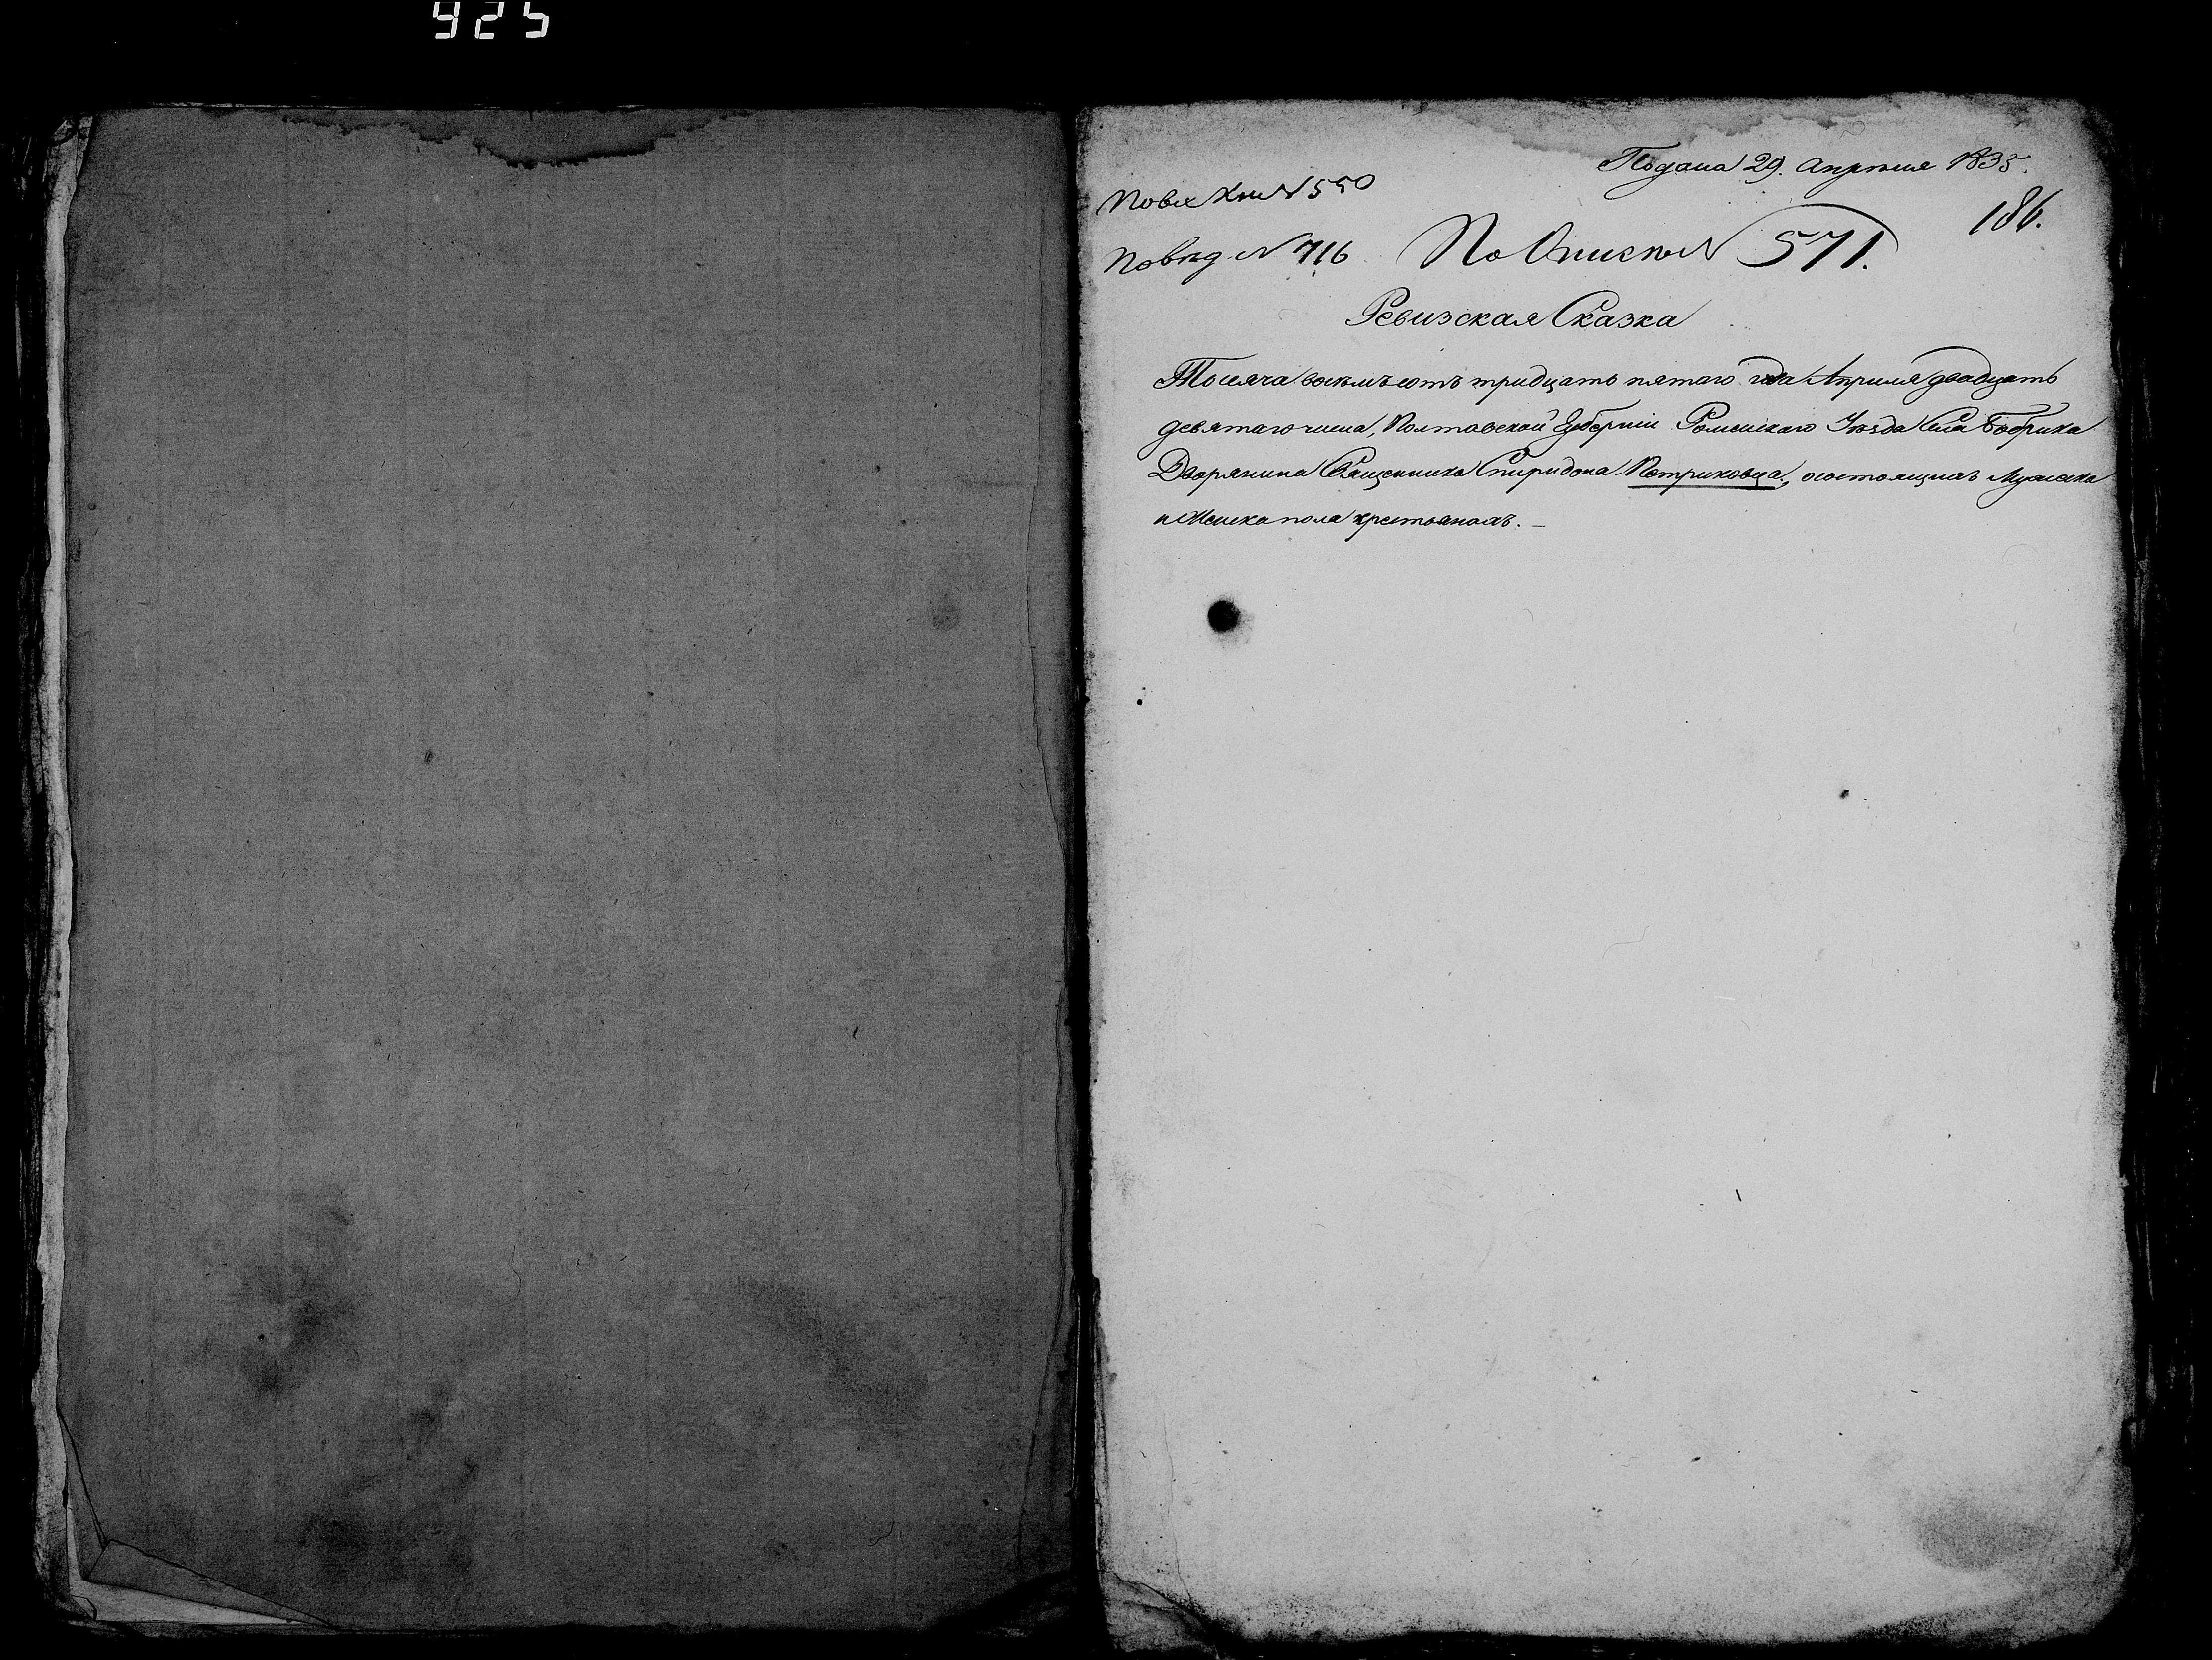 925
Подана 29. Апрѣля 1835.
По вх Кни N 550
186.
По вѣд. N 716
По Описи N 571.
Ревизская Сказка
Тысяча восемъ сотъ тридцать пятаго года Апреля двадцать
девятаго числа, Полтавской Губерніи Роменскаго Уѣзда Села Бобрика
Дворянина Священника Спиридона Петриковца, о состоящихъ Мужеска
и Женска пола крестьянахъ. —